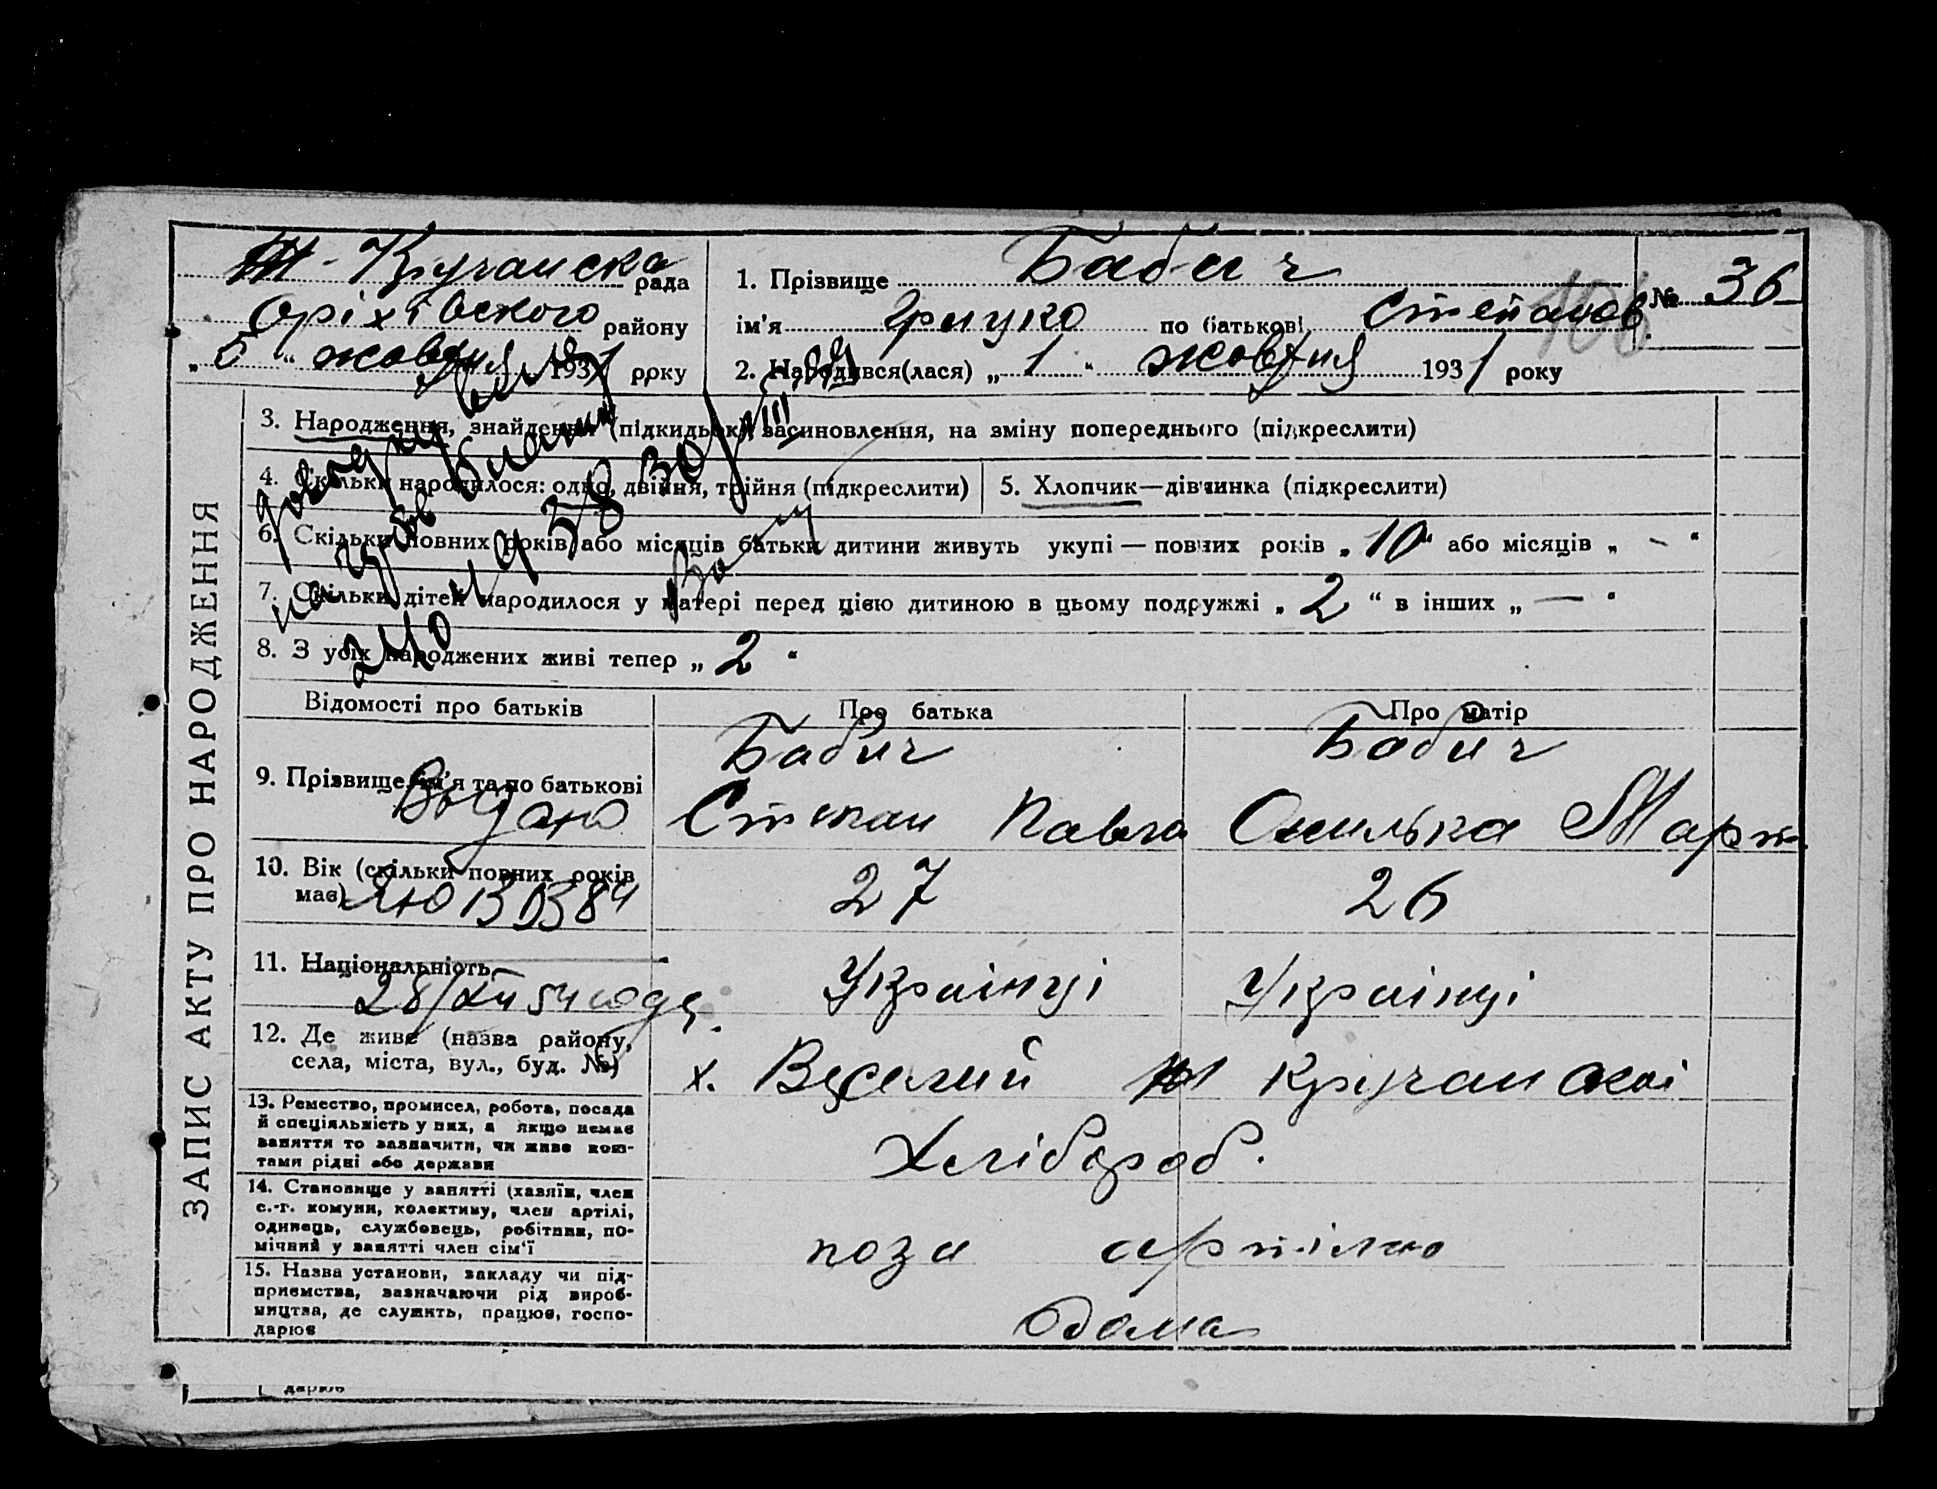 Кручанска рада
Оріхівського району
„ 5 “ жовтня 1931 року
1. Прізвище Бабич
№ 36
ім'я Грицко по батькові Степанов
106
2. Народився(лася) „ 1 “ жовтня 1931 року
ЗАПИС АКТУ ПРО НАРОДЖЕННЯ
3. Народження, знайдення (підкидьок) засиновлення, на зміну попереднього (підкреслити)
4. Скільки народилося: одно, двійня, трійня (підкреслити)
5. Хлопчик—дівчинка (підкреслити)
6. Скільки повних років або місяців батьки дитини живуть укупі — повних років „ 10 “ або місяців „ - “
7. Скільки дітей народилося у матері перед цією дитиною в цьому подружжі „ 2 “ в інших „ — “
8. З усіх народжених живі тепер „ 2 “
Відомості про батьків
Про батька
Про матір
9. Прізвище, ім'я та по батькові
Бабич
Степан Павло
Бабич
Омилька Март
10. Вік (скільки повних років має)
27
26
11. Національність
Українці
Українці
12. Де живе (назва району, села, міста, вул., буд. №)
х. Веселий Кручанскоі
13. Ремество, промисел, робота, посада
й спеціяльність у них, а якщо немає
заняття то зазначити, чи живе кош-
тами рідні або держави
Хлібороб.
14. Становище у занятті (хазяїн, член
с.-г. комуни, колективу, член артілі,
одинець, службовець, робітник, по-
мічний у занятті член сім'ї
поза артілью
15. Назва установи, закладу чи під-
приємства, зазначаючи рід вироб-
ництва, де служить, працює, госпо-
дарює
дома
дарює